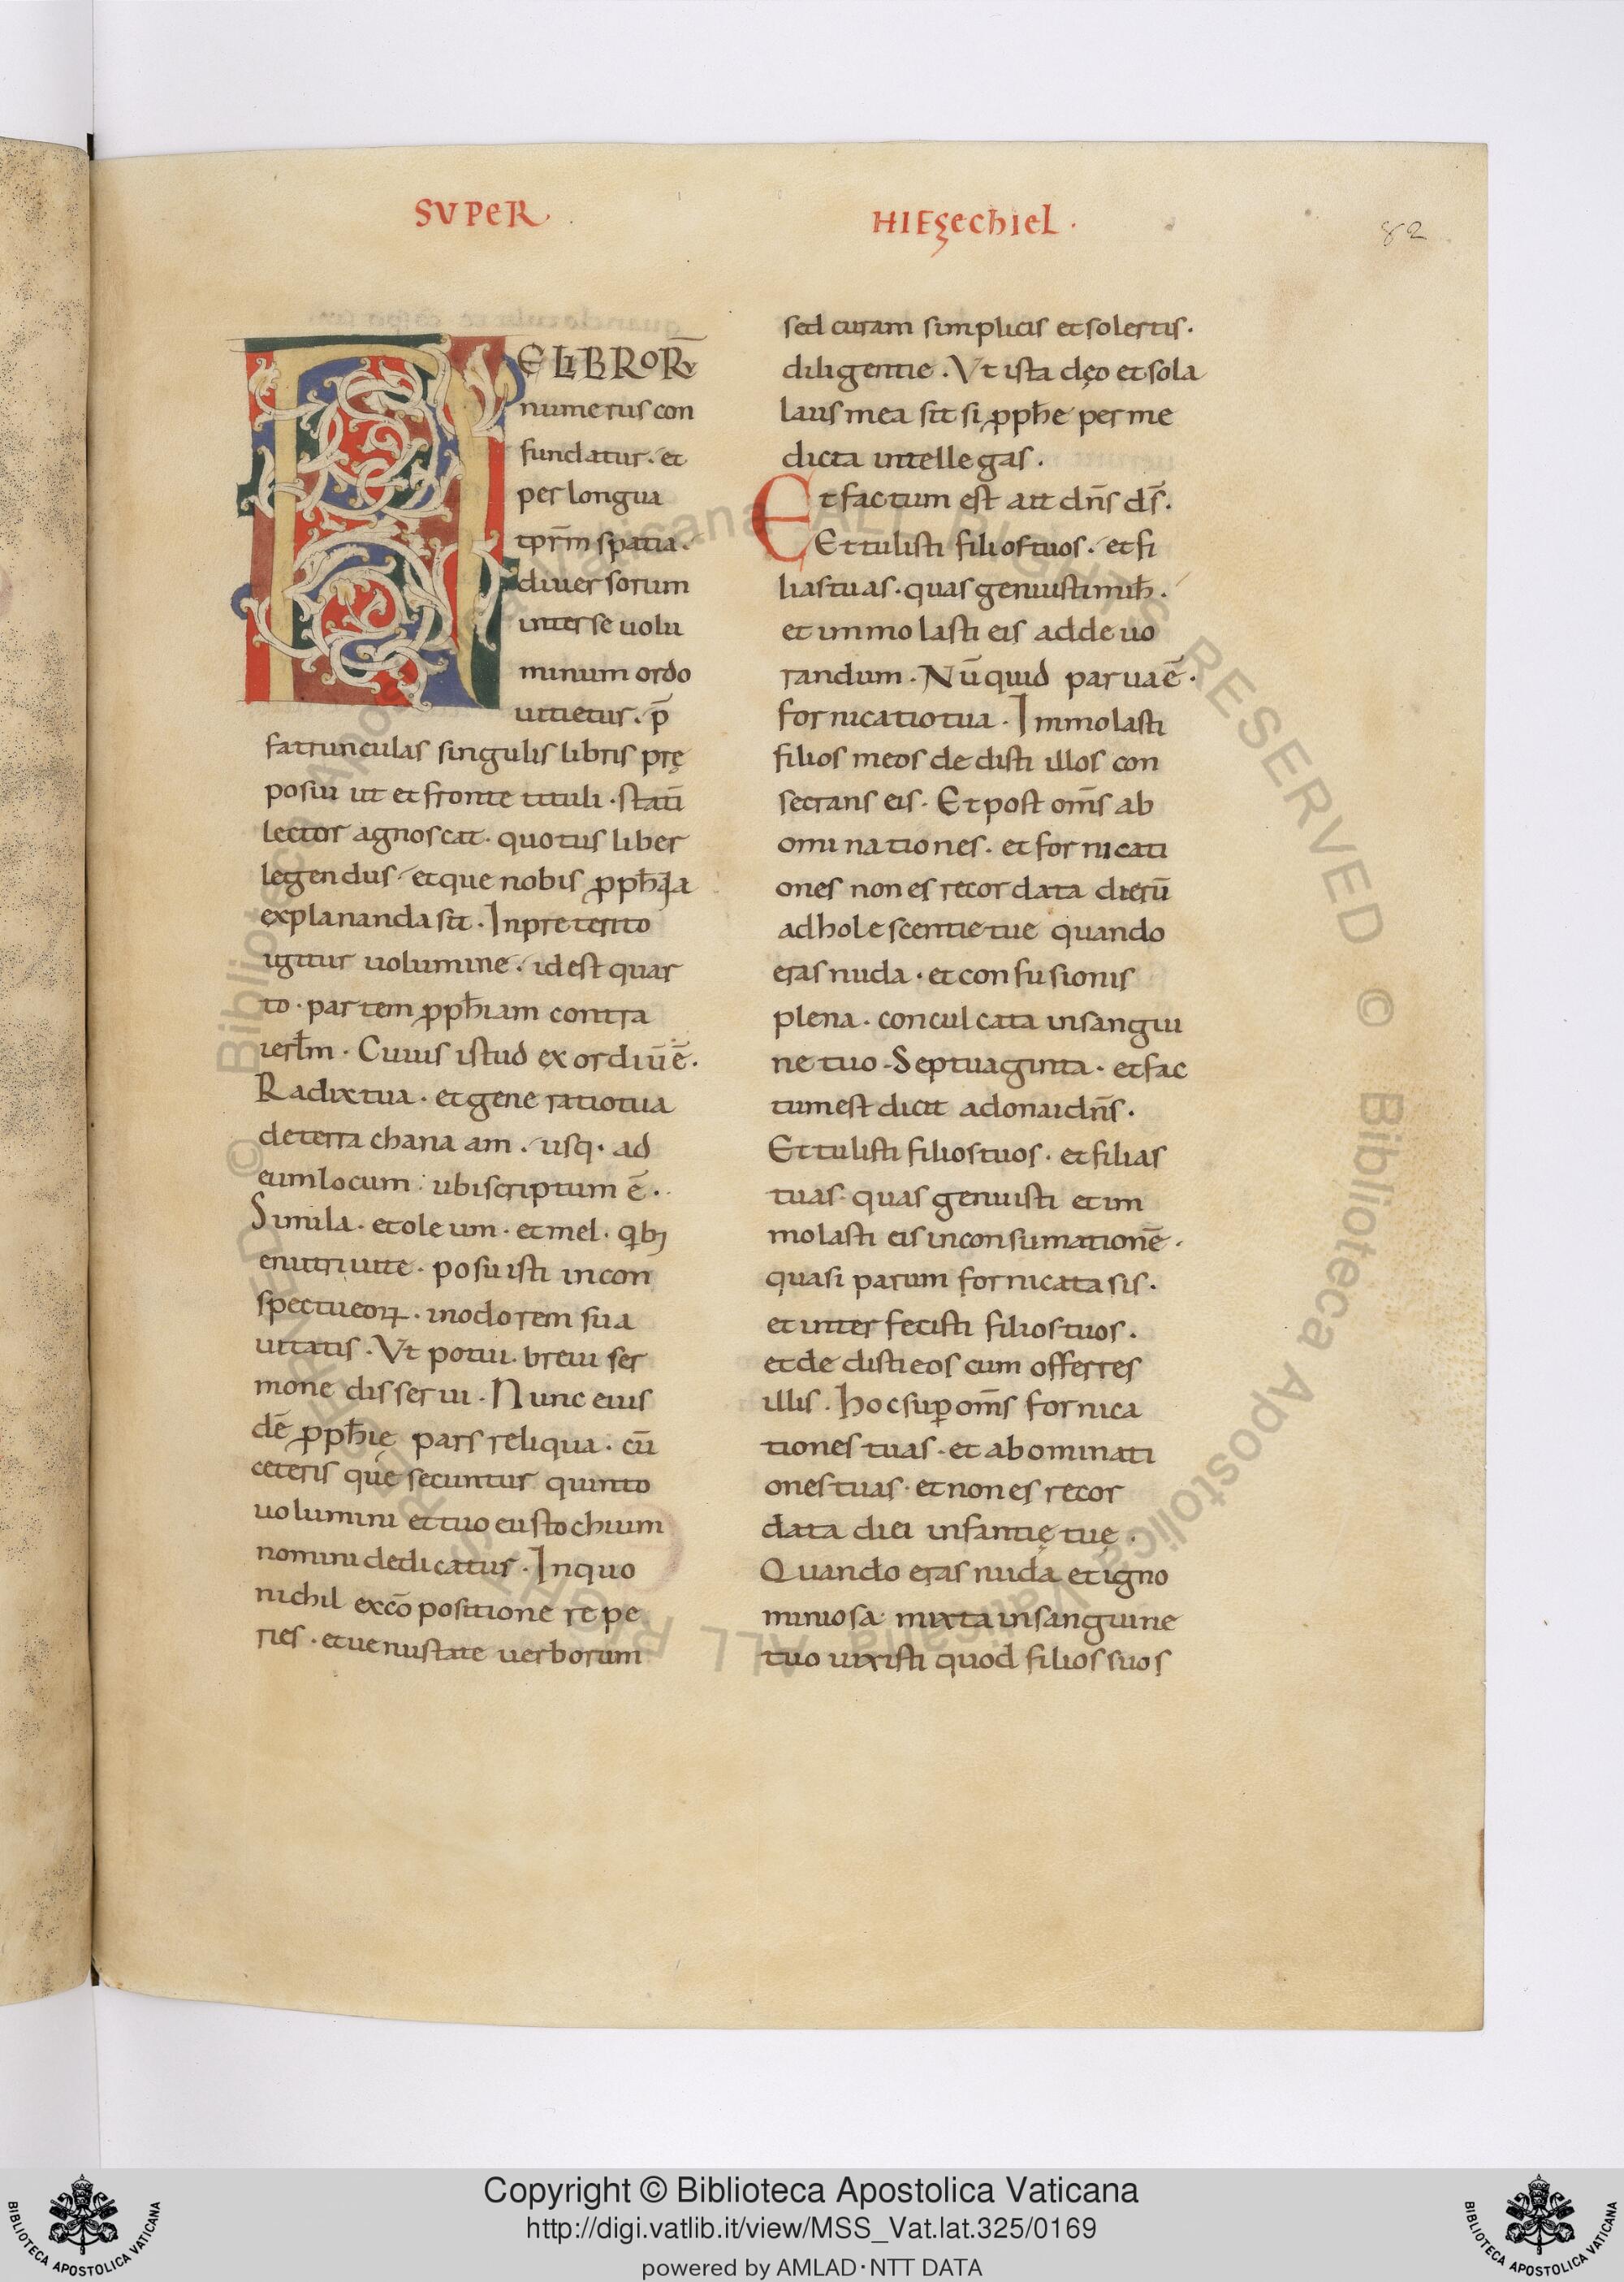 SVPER
HIEzechiel ·
82
NE LIBRORṼ
numerus con
fundatur. et
per longua
tp̄rm spatia.
diuersorum
inter se uolu
minum ordo
uitietur. p̄
fatiunculas singulis libris prę
posui ut et fronte tituli · statī
lector agnoscat · quotus liber
legendus · et que nobis ꝓpħtia
explananda sit · In preterito
igitur uolumine · id est quar
to · partem ꝓpħiam contra
ierłm · Cuius istud exordiū ē ·
Radix tua · et generatio tua
de terra chanaam · usq· ad
eum locum ubi scriptum ē ·
Simila · et oleum · et mel · qibꝫ
enutriui te · posuisti in con
spectu eoꝝ · in odorem sua
uitatis · Vt potui · breui ser
mone disserui · Nunc eius
dē ꝓpħie pars reliqua · cū
ceteris que secuntur quinto
uolumini et tuo eustochium
nomini dedicatur · In quo
nichil ex cō positione repe
ries · et uenustate uerborum
sed curam simplicis et solertis ·
diligentie · Vt ista dęo et sola
laus mea sit si ꝓpħe per me
dicta intellegas ·
Et factum est ait dn̄s ds̄ ·
Et tulisti filios tuos · et fi
lias tuas · quas genuisti miħ ·
et immolasti eis ad deuo
randum · Nūquid parua ē ·
fornicatio tua · Immolasti
filios meos dedisti illos con
secrans eis · Et post om̄s ab
ominationes · et fornicati
ones non es recordata dierū
adholescentie tue quando
eras nuda · et confusionis
plena · conculcata in sangui
ne tuo · Septuaginta · et fac
tum est dicit adonai dn̄s ·
Et tulisti filios tuos · et filias
tuas · quas genuisti et im
molasti eis in consumationē ·
quasi parum fornicata sis ·
et interfecisti filios tuos ·
et dedisti eos cum offerres
illis · Hoc suꝑ om̄s fornica
tiones tuas · et abominati
ones tuas · et non es recor
data diei infantię tuę ·
Quando eras nuda et igno
miniosa mixta in sanguine
tuo uixisti quod filios suos
© Biblioteca Apostolica Vaticana ALL RIGHTS RESERVED © Biblioteca Apostolica Vaticana ALL RIGHTS RESERVED
Copyright © Biblioteca Apostolica Vaticana
http://digi.vatlib.it/view/MSS_Vat.lat.325/0169
powered by AMLAD·NTT DATA
BIBLIOTECA APOSTOLICA VATICANA
BIBLIOTECA APOSTOLICA VATICANA